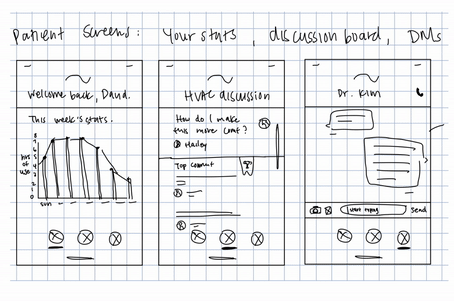 Patient Screens: Your stats, discussion board, DMs
Welcome back, David.
This week's stats.
8
hrs of use
sun
HVAC discussion
How do I make
this more
Hailey
Top comment
Dr. Kim
start typing
Send